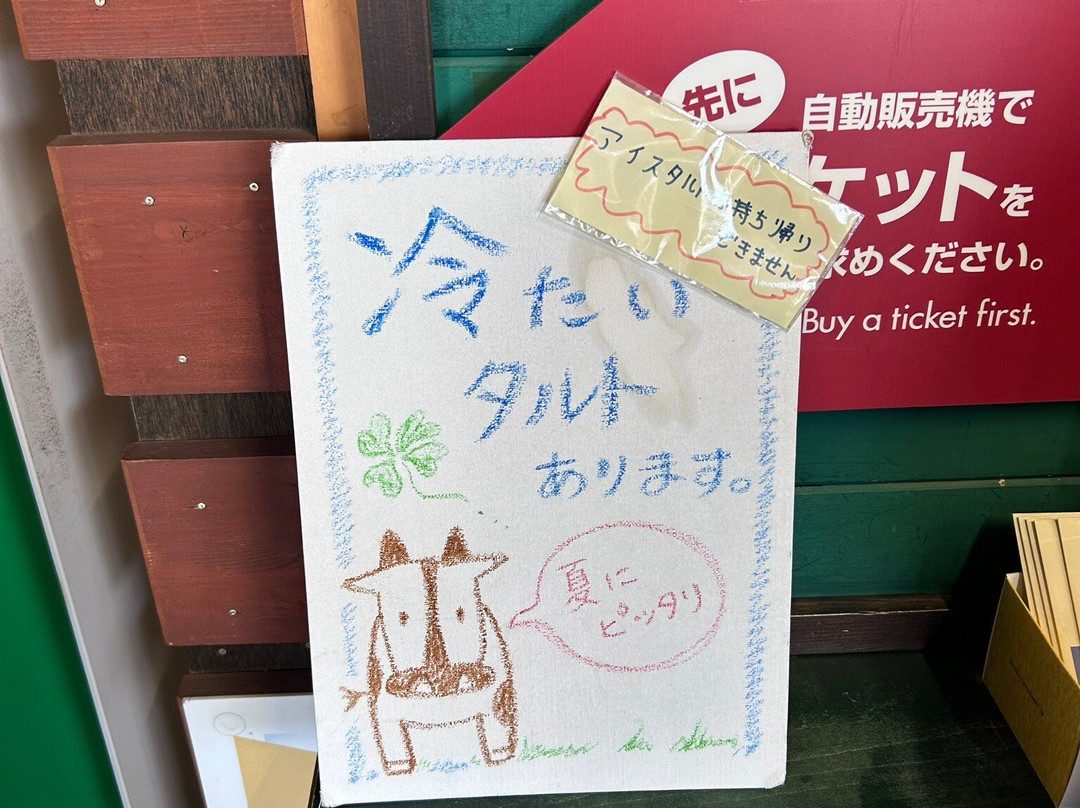 先に
自動販売機で
ケットを
求めください。
Buy a ticket first.
アイスタルト
持ち帰り
できません
冷たい
タルト
あります。
夏に
ピッタリ